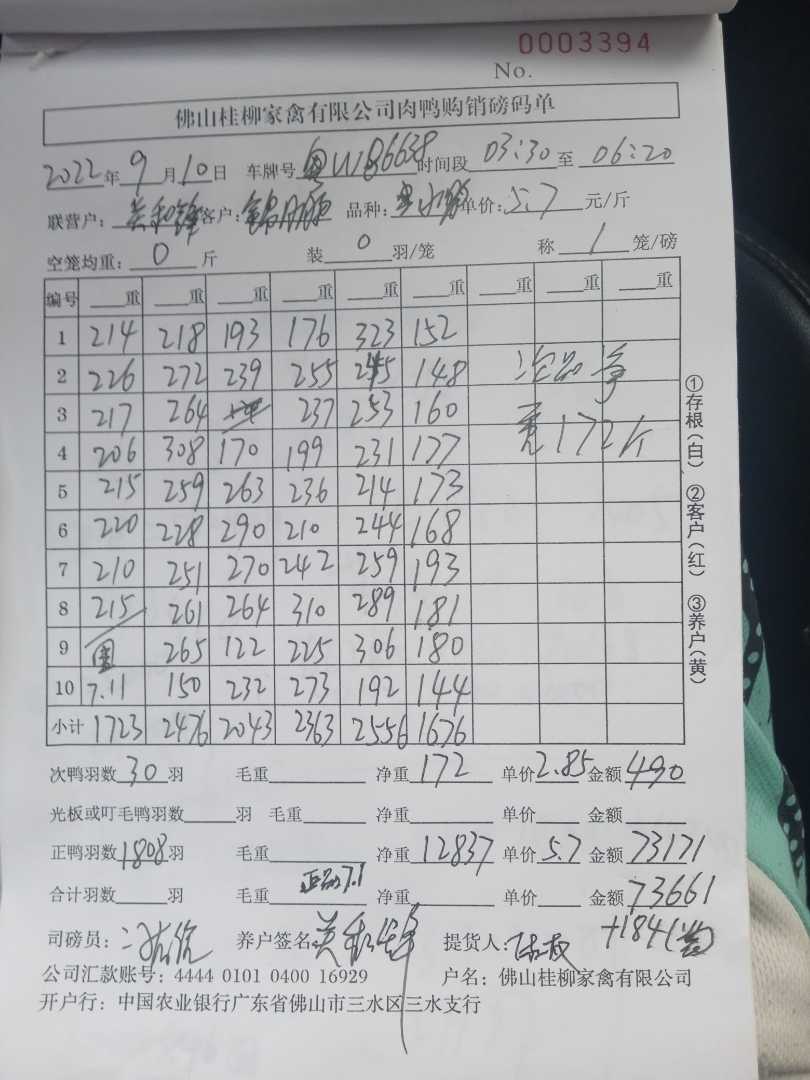 0003394
No.
佛山桂柳家禽有限公司肉鸭购销磅码单
2022年9月10日 车牌号粤W86638时间段 03:30至06:20
联营户: 客户: 品种: 单价:5.7元/斤
空笼均重: 0 斤 装 0 羽/笼 称 1 笼/磅
编号 重 重 重 重 重 重 重 重 重
1 214 218 193 176 323 152
2 226 272 239 255 245 148 次品净
3 217 264 237 253 160 重172斤
4 206 308 170 199 231 177
5 215 259 263 236 214 173
6 220 228 290 210 244 168
7 210 251 270 242 259 193
8 215 261 264 310 289 181
9 265 122 225 306 180
10 7.11 150 232 273 192 144
小计 1723 2476 2043 2363 2556 1676
①存根(白) ②客户(红) ③养户(黄)
次鸭羽数30羽 毛重 净重172 单价2.85金额490
光板或叮毛鸭羽数 羽 毛重 净重 单价 金额
正鸭羽数1808羽 毛重 净重12837 单价5.7金额73171
合计羽数 羽 毛重 7.1 净重 单价 金额73661
司磅员: 养户签名: 提货人: +184
公司汇款账号: 4444 0101 0400 16929 户名: 佛山桂柳家禽有限公司
开户行: 中国农业银行广东省佛山市三水区三水支行